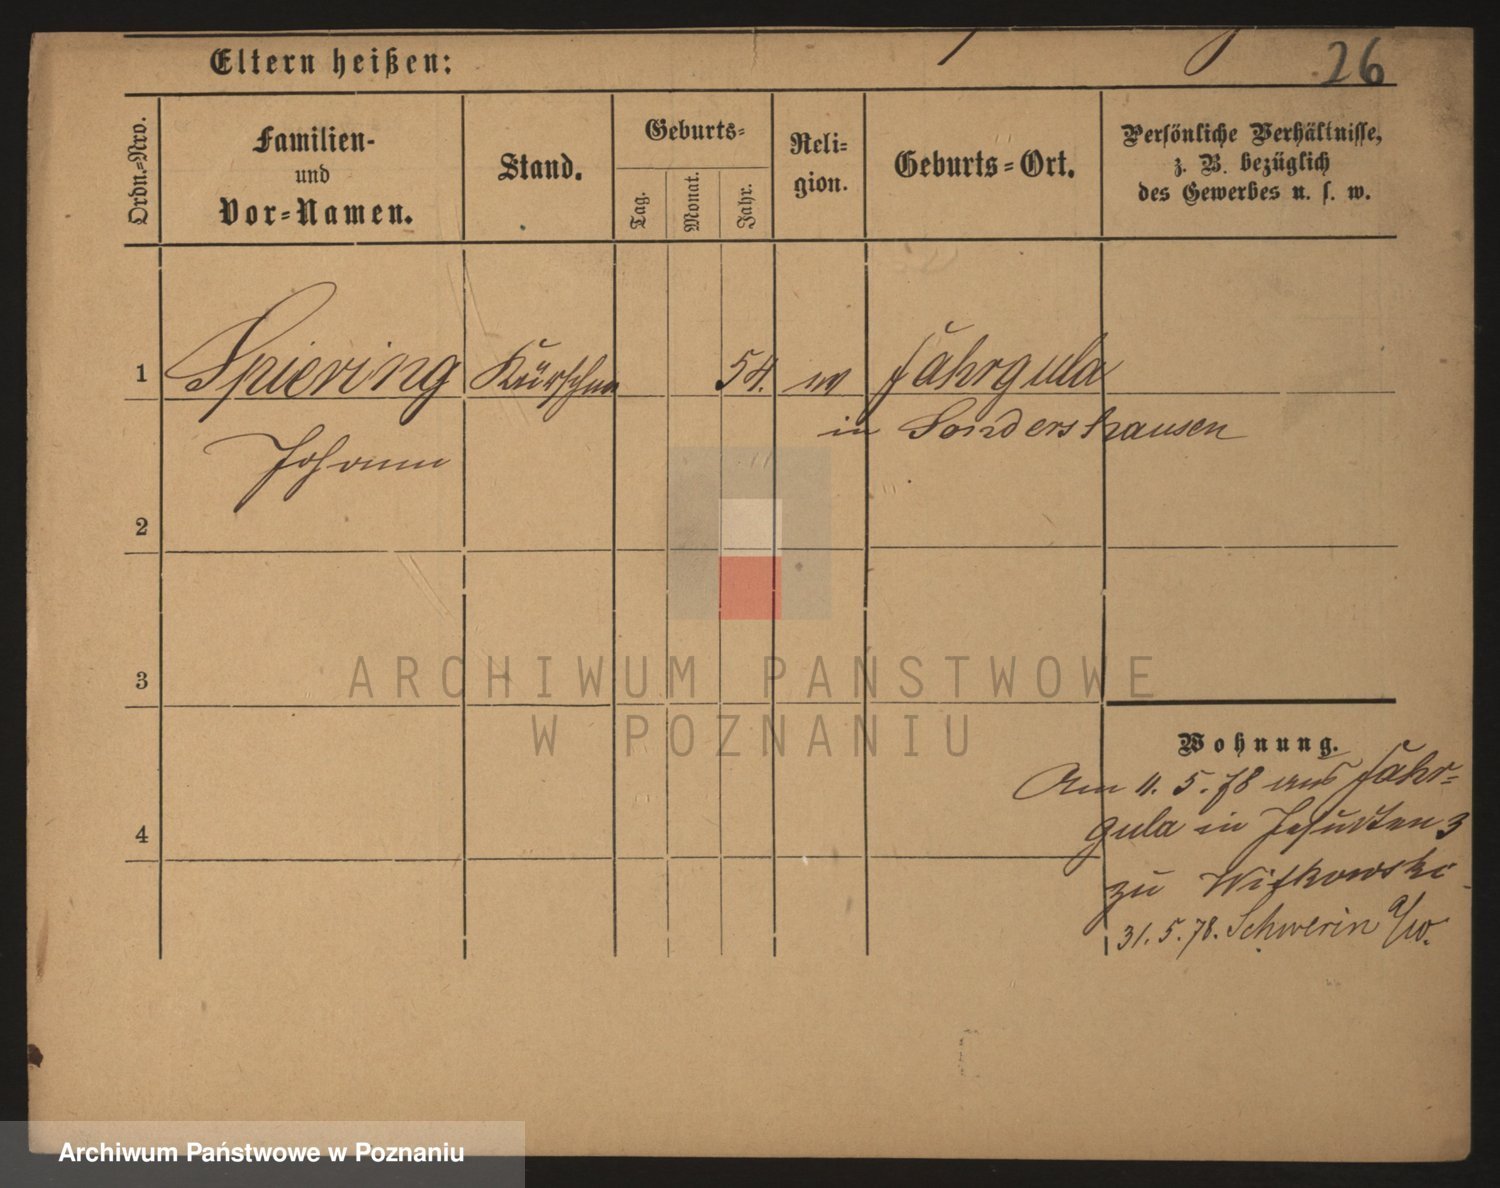 26
Eltern heißen:
Ordn.-Nro.
Familien-
und
Vor-Namen.
Stand.
Geburts-
Tag.
Monat.
Jahr.
Reli-
gion.
Geburts-Ort.
Persönliche Verhältnisse,
z. B. bezüglich
des Gewerbes u. s. w.
1 Spiering Kürschner 54. Jahrgula
in Sondershausen
Johann
2
3
4
Wohnung.
Am 11. 5. 78 aus Jahr-
gula in Jesuiten 3
zu Witkowski
31. 5. 78. Schwerin a/w.
ARCHIWUM PAŃSTWOWE
W POZNANIU
Archiwum Państwowe w Poznaniu